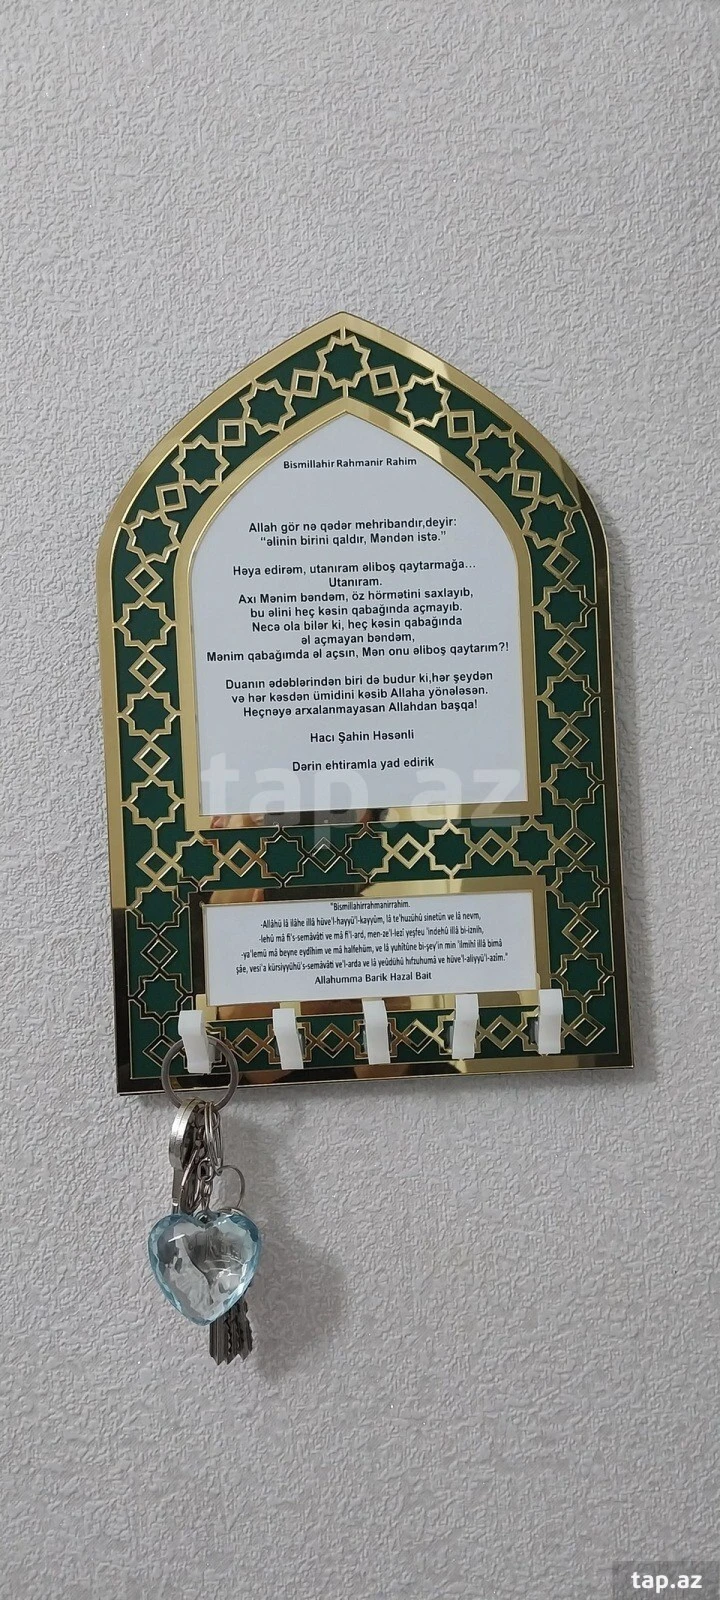 Bismillahir Rahmanir Rahim
Allah gör nə qədər mehribandır,deyir:
“əlinin birini qaldır, Məndən istə.”
Həya edirəm, utanıram əliboş qaytarmağa...
Utanıram.
Axı Mənim bəndəm, öz hörmətini saxlayıb,
bu əlini heç kəsin qabağında açmayıb.
Necə ola bilər ki, heç kəsin qabağında
əl açmayan bəndəm,
Mənim qabağımda əl açsın, Mən onu əliboş qaytarım?!
Duanın ədəblərindən biri də budur ki,hər şeydən
və hər kəsdən ümidini kəsib Allaha yönələsən.
Heçnəyə arxalanmayasan Allahdan başqa!
Hacı Şahin Həsənli
Dərin ehtiramla yad edirik
tap.az
"Bismillahirrahmanirrahim.
-Allâhü lâ ilâhe illâ hüve'l-hayyü'l-kayyûm, lâ te'huzühû sinetün ve lâ nevm,
-lehû mâ fi's-semâvâti ve mâ fi'l-ard, men-ze'l-lezî yeşfeu 'indehû illâ bi-iznih,
-ya'lemü mâ beyne eydîhim ve mâ halfehüm, ve lâ yuhîtûne bi-şey'in min 'ilmihî illâ bimâ
şâe, vesi'a kürsiyyühü's-semâvâti ve'l-arda ve lâ yeûdühû hıfzuhumâ ve hüve'l-aliyyü'l-azîm."
Allahumma Barik Hazal Bait
tap.az